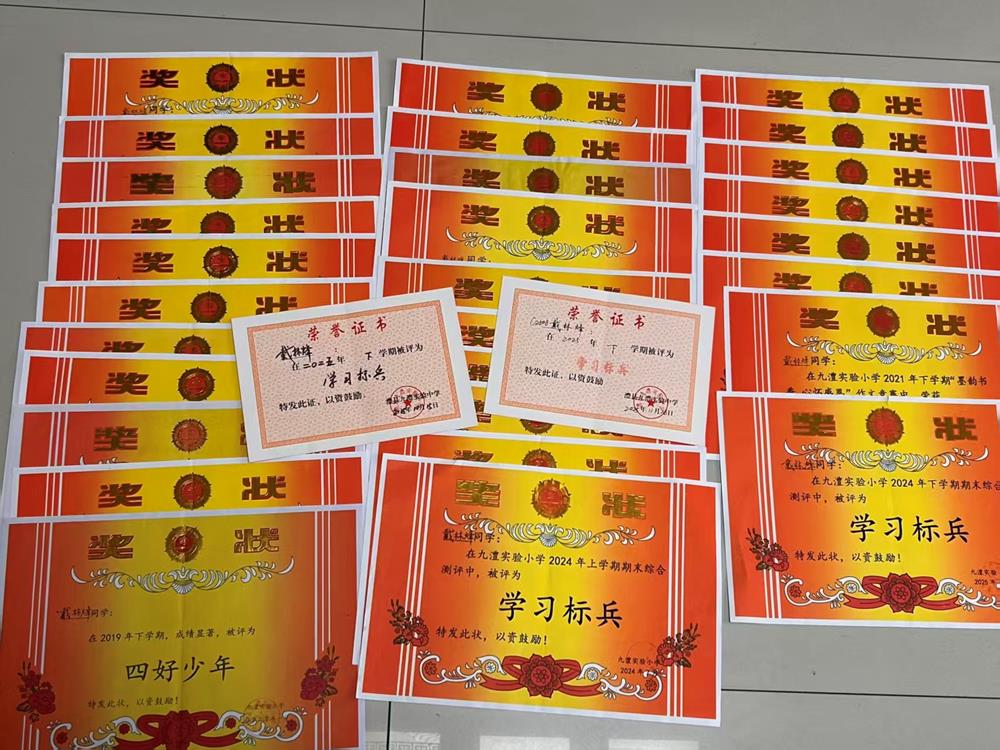 奖 状
奖 状
奖 状
奖 状
奖 状
奖 状
奖 状
奖 状
奖 状
奖 状
奖 状
戴林烽同学:
在2019年下学期,成绩显著,被评为
四好少年
特发此状,以资鼓励!
奖 状
奖 状
奖 状
奖 状
同学:
奖 状
戴林烽同学:
在九澧实验小学2024年上学期期末综合
测评中,被评为
学习标兵
特发此状,以资鼓励!
九澧实验小学
2024年
荣誉证书
戴林烽
在二〇二五年 下 学期被评为
学习标兵
特发此证,以资鼓励
澧县九澧实验中学
荣誉证书
C2001戴林烽:
在 2025 年 下 学期被评为
学习标兵
特发此证,以资鼓励
澧县九澧实验中学
奖 状
奖 状
奖 状
奖 状
奖 状
奖 状
奖 状
戴林烽同学:
在九澧实验小学2021年下学期“墨韵书
香 心怀感恩”作文竞赛中,荣获
奖 状
戴林烽同学:
在九澧实验小学2024年下学期期末综合
测评中,被评为
学习标兵
特发此状,以资鼓励!
九澧实验
2025年